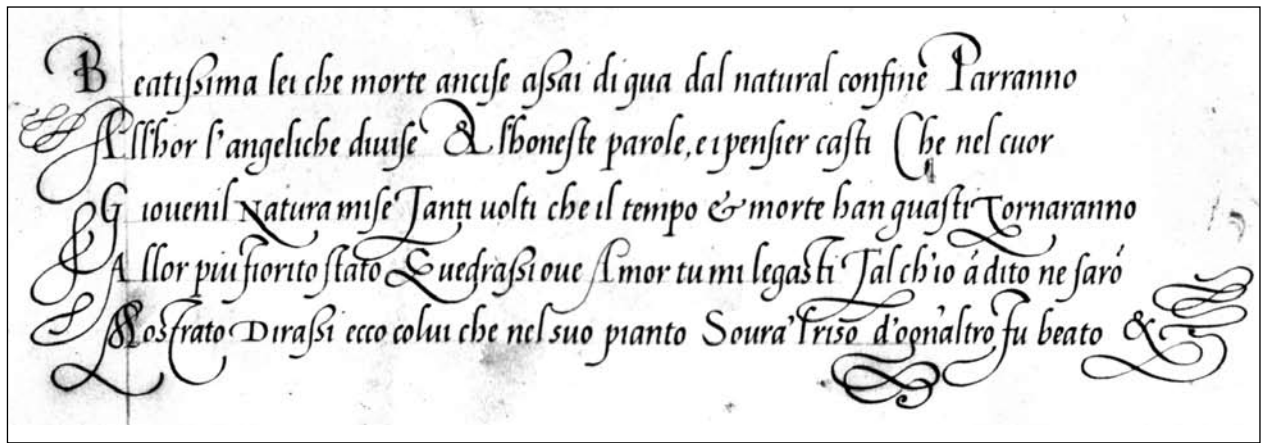 Beatissima lei che morte ancise assai di qua dal natural confine Parranno
All'hor l'angeliche divise & l'honeste parole, e i pensier casti Che nel cuor
Giouenil Natura mise Tanti uolti che il tempo & morte han guasti Tornaranno
Allor piu fiorito stato E uedrassi oue Amor tu mi legasti Tal ch'io á dito ne saró
Mostrato Dirassi ecco colui che nel suo pianto Soura'l riso d'ogn'altro fu beato &